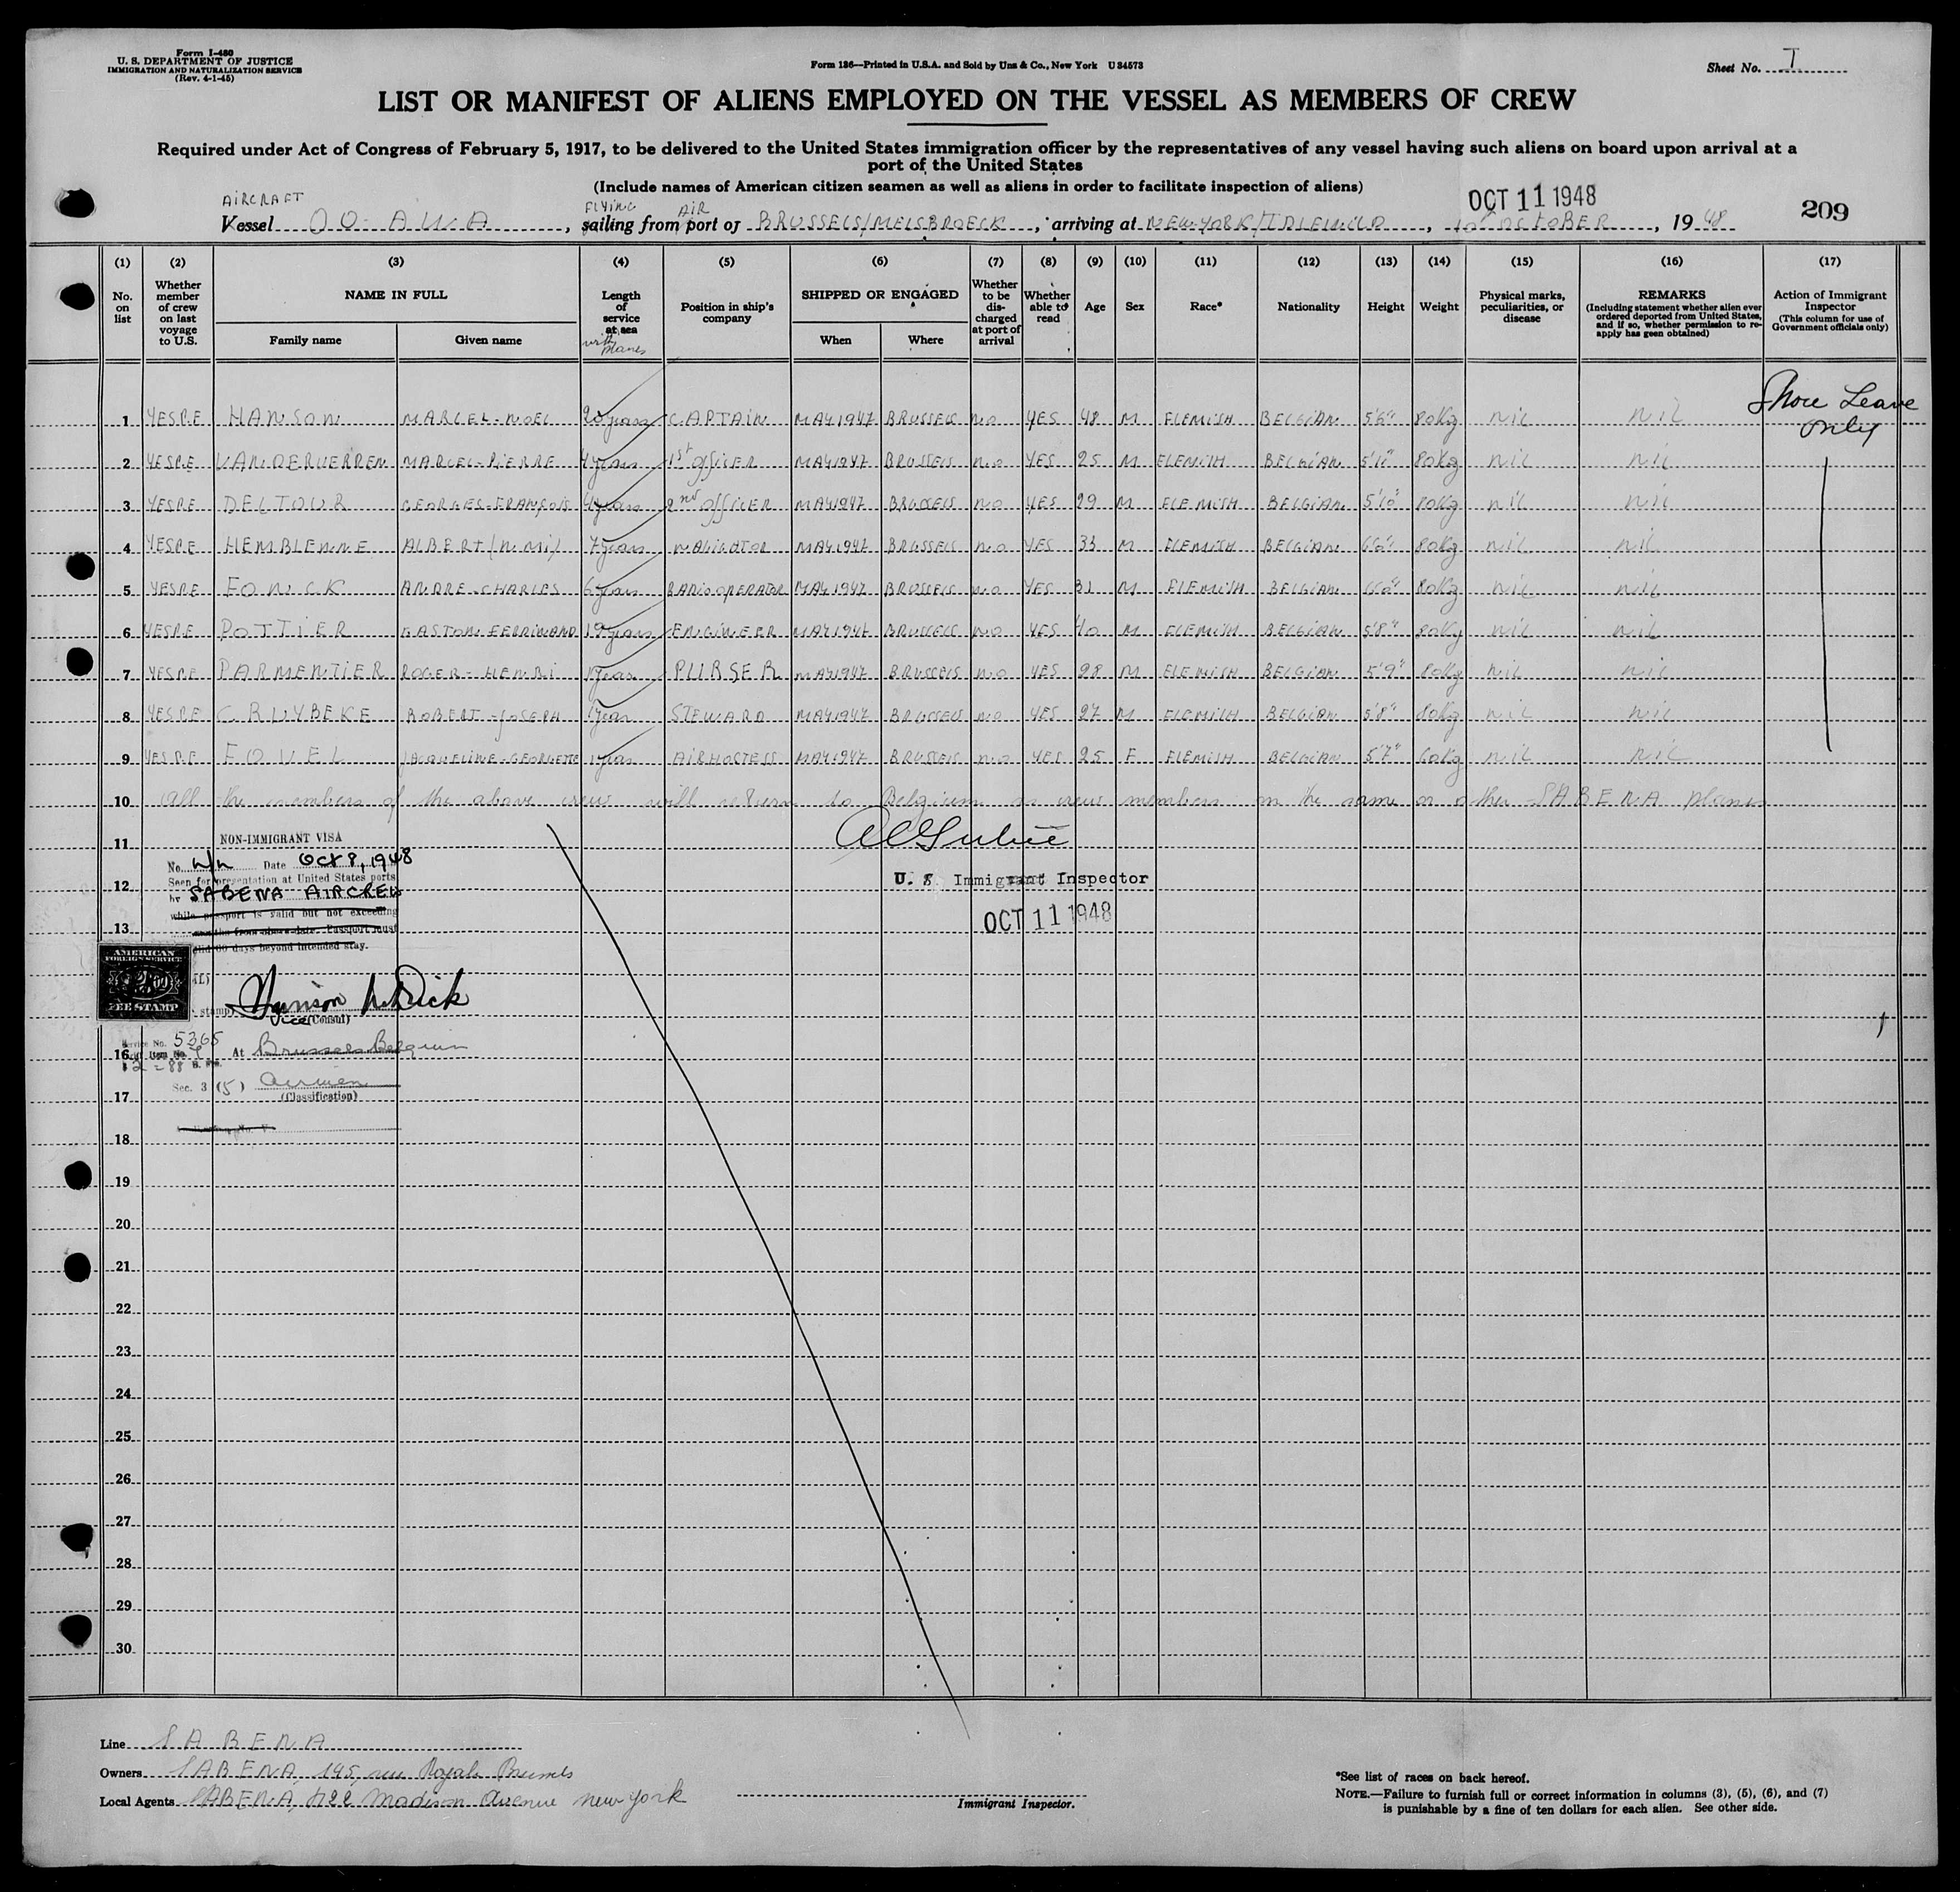 Form I-480
U. S. DEPARTMENT OF JUSTICE
IMMIGRATION AND NATURALIZATION SERVICE
(Rev. 4-1-45)
Form 136—Printed in U.S.A. and Sold by Unz & Co., New York U 34573
Sheet No. I
LIST OR MANIFEST OF ALIENS EMPLOYED ON THE VESSEL AS MEMBERS OF CREW
Required under Act of Congress of February 5, 1917, to be delivered to the United States immigration officer by the representatives of any vessel having such aliens on board upon arrival at a
port of the United States
(Include names of American citizen seamen as well as aliens in order to facilitate inspection of aliens)
AIRCRAFT FLYING AIR OCT 11 1948
Vessel OO-AWA, sailing from port of BRUSSELS/MELSBROECK, arriving at NEW-YORK/IDLEWILD, 10 OCTOBER, 1948 209
(1) (2) (3) (4) (5) (6) (7) (8) (9) (10) (11) (12) (13) (14) (15) (16) (17)
No. on list
Whether member of crew on last voyage to U.S.
NAME IN FULL
Family name Given name
Length of service at sea with planes
Position in ship's company
SHIPPED OR ENGAGED
When Where
Whether to be discharged at port of arrival
Whether able to read
Age Sex Race* Nationality Height Weight
Physical marks, peculiarities, or disease
REMARKS
(Including statement whether alien ever ordered deported from United States, and if so, whether permission to re-apply has geen obtained)
Action of Immigrant Inspector
(This column for use of Government officials only)
1 YES P.E HANSON MARCEL-NOEL 20 years CAPTAIN MAY 1947 BRUSSELS no YES 48 M FLEMISH BELGIAN 5'6" 80Kg nil nil Shore Leave only
2 YES P.E VANDERVERREN MARCEL-PIERRE 4 years 1st OFFICER MAY 1947 BRUSSELS no YES 25 M FLEMISH BELGIAN 5'10" 80Kg nil nil
3 YES P.E DELTOUR GEORGES-FRANÇOIS 4 years 2nd OFFICER MAY 1947 BRUSSELS no YES 29 M FLEMISH BELGIAN 5'10" 80Kg nil nil
4 YES P.E HEMBLENNE ALBERT (N.MI) 7 years NAVIGATOR MAY 1947 BRUSSELS no YES 33 M FLEMISH BELGIAN 80Kg nil nil
5 YES P.E FONCK ANDRE-CHARLES 6 years RADIO OPERATOR MAY 1947 BRUSSELS no YES M FLEMISH BELGIAN 80Kg nil nil
6 YES P.E POTTIER GASTON FERDINAND 19 years ENGINEER MAY 1947 BRUSSELS no YES 40 M FLEMISH BELGIAN 5'8" 80Kg nil nil
7 YES P.E PARMENTIER ROGER-HENRI 1 year PURSER MAY 1947 BRUSSELS no YES 28 M FLEMISH BELGIAN 5'9" 80Kg nil nil
8 YES P.E CRUYBEKE ROBERT-JOSEPH 1 year STEWARD MAY 1947 BRUSSELS no YES 27 M FLEMISH BELGIAN 5'8" 80Kg nil nil
9 YES P.E FOUEL JACQUELINE-GEORGETTE 1 year AIRHOSTESS MAY 1947 BRUSSELS no YES 25 F FLEMISH BELGIAN 5'7" 60Kg nil nil
10 All the members of the above crew will return to Belgium as crew members on the same or other SABENA planes
11
NON-IMMIGRANT VISA
No. Date Oct 8, 1948
Seen for presentation at United States ports
12 U. S. Immigrant Inspector
by SABENA AIRCREW
while passport is valid but not exceeding
13 OCT 11 1948
months from above date. Passport must
valid 60 days beyond intended stay.
AMERICAN
FOREIGN SERVICE
FEE STAMP
stamp)
Vice (Consul)
Service No. 5365
16 Item No. At Brussels Belgium
Sec. 3 (5) airmen
17 (Classification)
18
19
20
21
22
23
24
25
26
27
28
29
30
Line SABENA
Owners SABENA, 145, rue Royale Brussels
Local Agents SABENA, 422 Madison Avenue new york
Immigrant Inspector.
*See list of races on back hereof.
NOTE.—Failure to furnish full or correct information in columns (3), (5), (6), and (7)
is punishable by a fine of ten dollars for each alien. See other side.